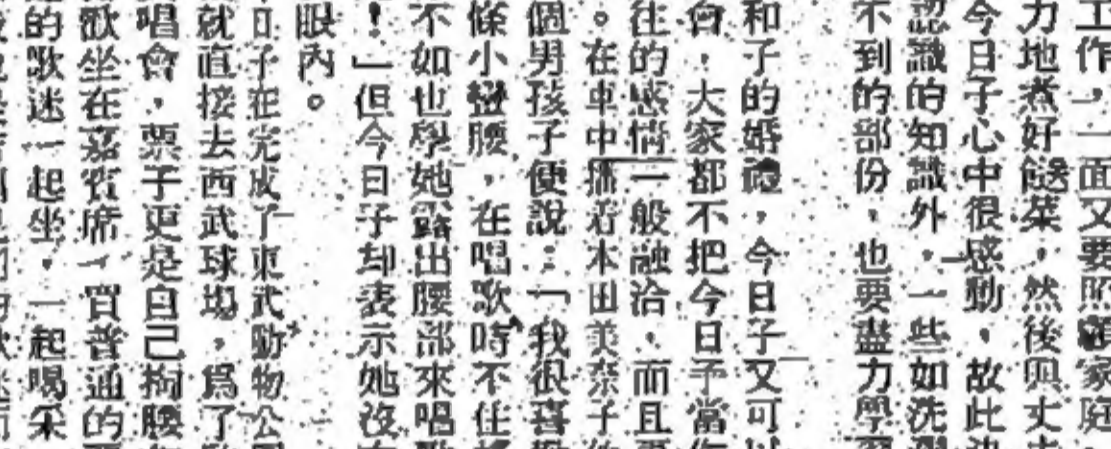 工作，一面又要照顧家庭，
力地煮好餸菜，然後與丈夫
今日子心中很感動，故此決
認識的知識外，一些如洗
不到的部份，也要盡力學習
和子的婚禮，今日子又可以
會，大家都不把今日子當作
往的感情一般融洽，而且更
。在車中播着本田美奈子的
個男孩子便說：「我很喜歡
條小蠻腰，在唱歌時不住
不如也學她露出腰部來唱歌
！」但今日子却表示她沒有
眼內。
日子在完成了東武動物公園
就直接去西武球場，爲了
唱會，栗子更是自己掏腰
歡坐在嘉賓席，買普通的
的歌迷一起坐，一起喝采